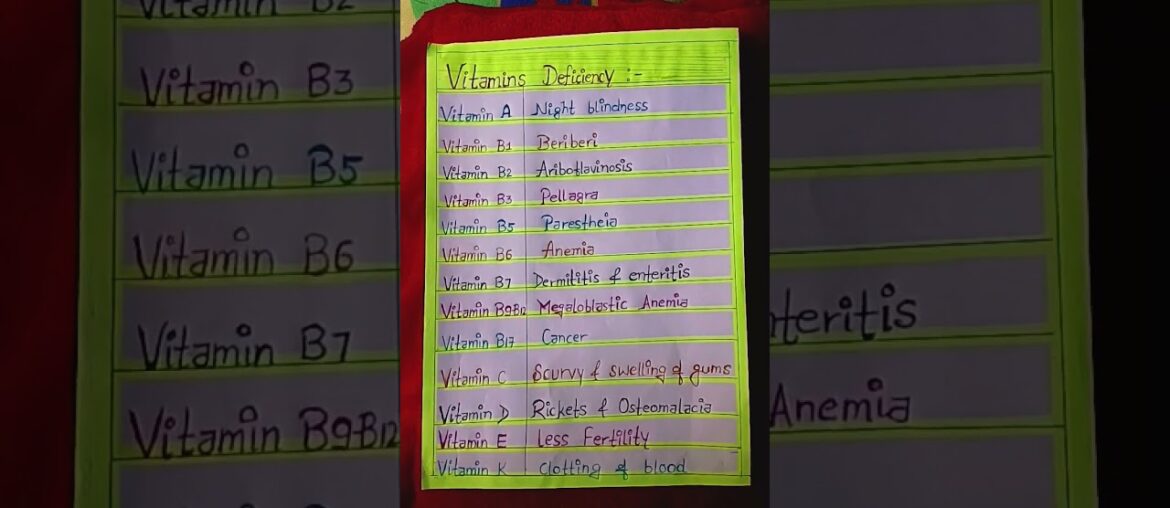 Vitamins Deficiency :-
Vitamin A Night blindness
Vitamin B1 Beriberi
Vitamin B2 Ariboflavinosis
Vitamin B3 Pellagra
Vitamin B5 Parestheia
Vitamin B6 Anemia
Vitamin B7 Dermititis & enteritis
Vitamin B9B12 Megaloblastic Anemia
Vitamin B17 Cancer
Vitamin C Scurvy & swelling of gums
Vitamin D Rickets & Osteomalacia
Vitamin E Less Fertility
Vitamin K Clotting of blood
Vitamin B2
Vitamin B3
Vitamin B5
Vitamin B6
Vitamin B7
Vitamin B9B12
nteritis
Anemia